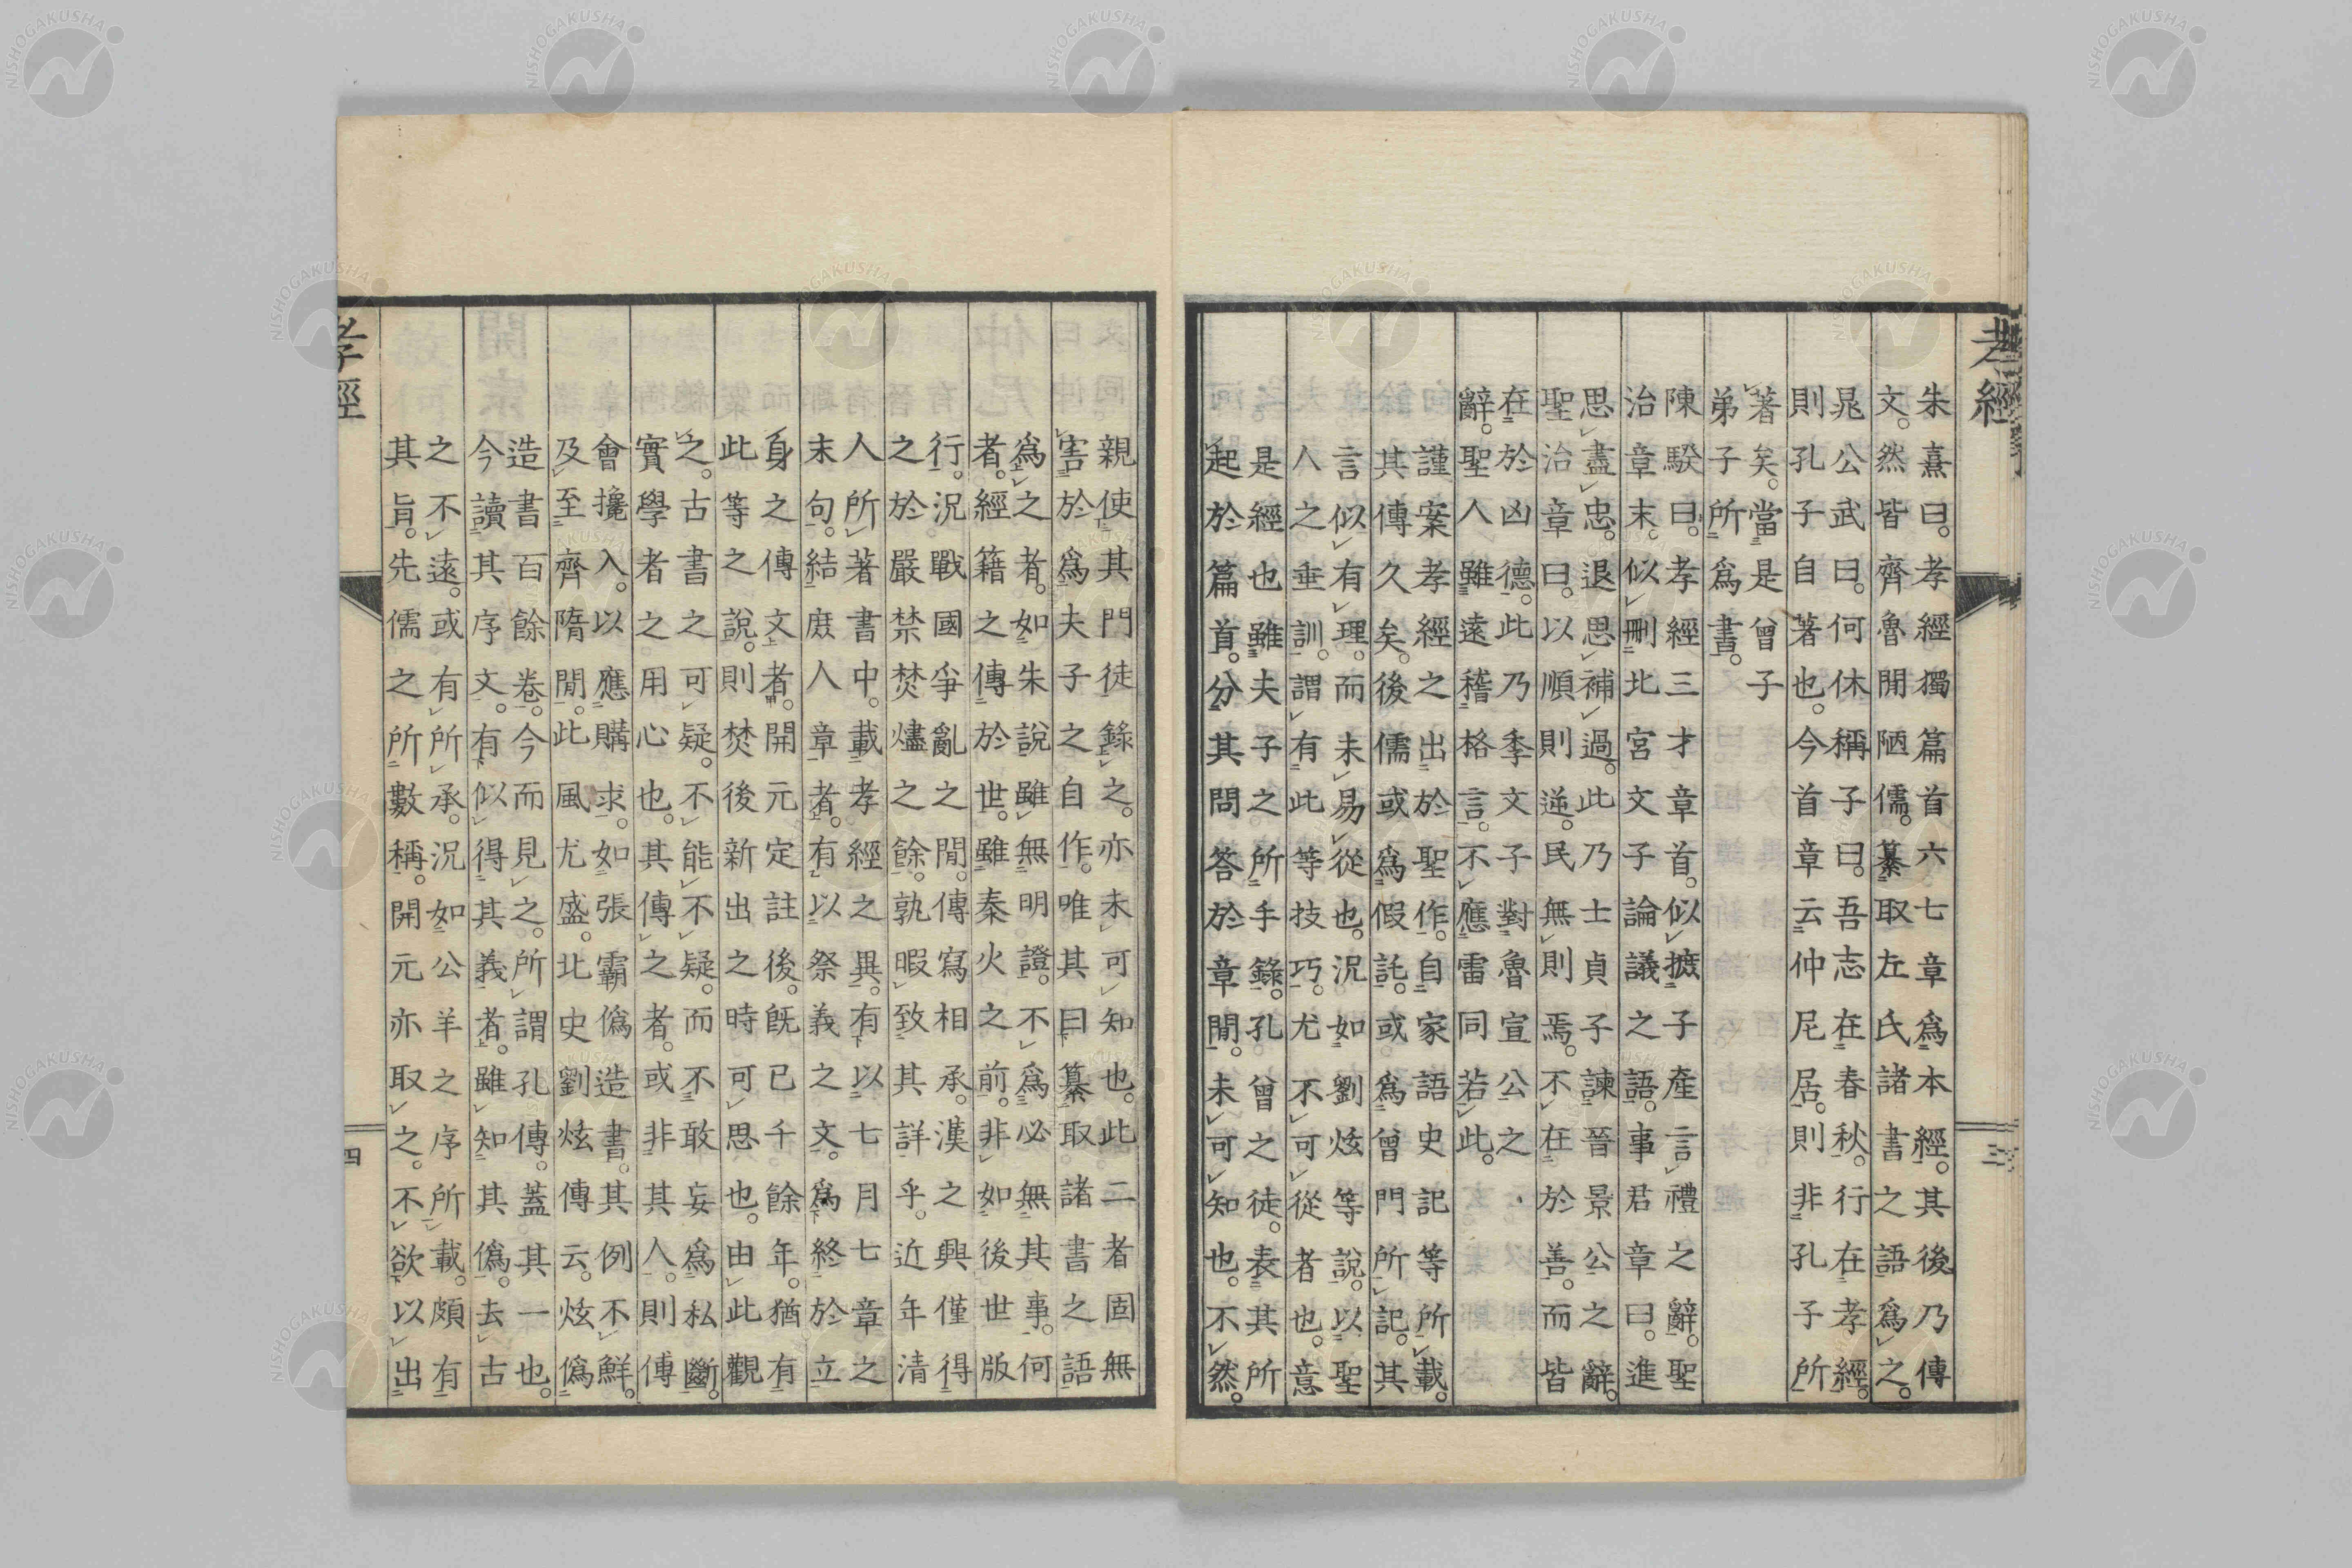 孝經
三
朱熹曰。孝經獨篇首六七章爲本經。其後乃傳
文。然皆齊魯閒陋儒。纂取左氏諸書之語爲之。
晁公武曰。何休稱子曰。吾志在春秋。行在孝經。
則孔子自著也。今首章云仲尼居。則非孔子所
著矣。當是曾子
弟子所爲書。
陳騤曰。孝經三才章首。似摭子產言禮之辭。聖
治章末。似刪北宮文子論議之語。事君章曰。進
思盡忠。退思補過。此乃士貞子諫晉景公之辭。
聖治章曰。以順則逆。民無則焉。不在於善。而皆
在於凶德。此乃季文子對魯宣公之
辭。聖人雖遠稽格言。不應雷同若此。
謹案孝經之出於聖作。自家語史記等所載。
其傳久矣。後儒或爲假託。或爲曾門所記。其
言似有理。而未易從也。況如劉炫等說。以聖
人之垂訓。謂有此等技巧。尤不可從者也。意
是經也雖夫子之所手錄。孔曾之徒。表其所
起於篇首。分其問答於章閒。未可知也。不然。
親使其門徒錄之。亦未可知也。此二者固無
害於爲夫子之自作。唯其曰纂取諸書之語
爲之者。如朱說雖無明證。不爲必無其事。何
者。經籍之傳於世。雖秦火之前。非如後世版
行。況戰國爭亂之閒。傳寫相承。漢之興僅得
之於嚴禁焚燼之餘。孰暇致其詳乎。近年清
人所著書中。載孝經之異。有以七月七章之
末句。結庶人章者。有以祭義之文。爲終於立
身之傳文者。開元定註後。既已千餘年。猶有
此等之說。則焚後新出之時可思也。由此觀
之。古書之可疑。不能不疑。而不敢妄爲私斷。
實學者之用心也。其傳之者。或非其人。則傅
會攙入。以應購求。如張霸僞造書。其例不鮮。
及至齊隋閒。此風尤盛。北史劉炫傳云。炫僞
造書百餘卷。今而見之。所謂孔傳。蓋其一也。
今讀其序文。有似得其義者。雖知其僞。去古
之不遠。或有所承。況如公羊之序所載。頗有
其旨。先儒之所數稱。開元亦取之。不欲以出
孝經
四